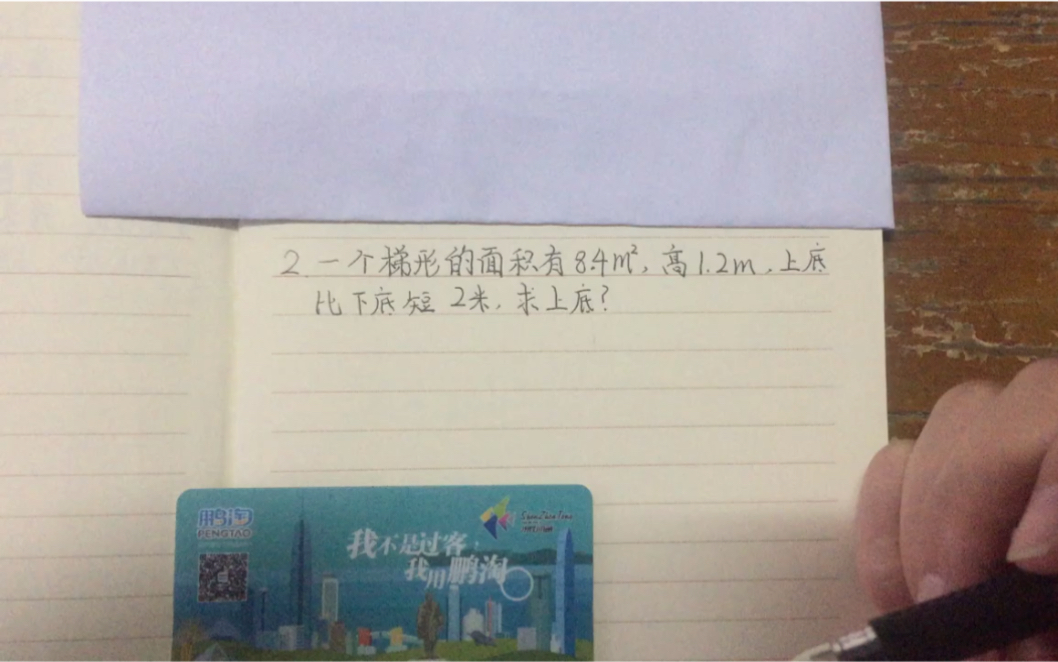 2. 一个梯形的面积有8.4m²，高1.2m，上底
比下底短 2米，求上底？
鹏淘
PENGTAO
我不是过客，
我用鹏淘